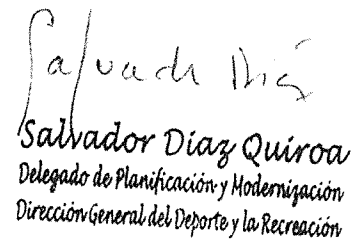 Salvador Diaz
Salvador Diaz Quiroa
Delegado de Planificación y Modernización
Dirección General del Deporte y la Recreación